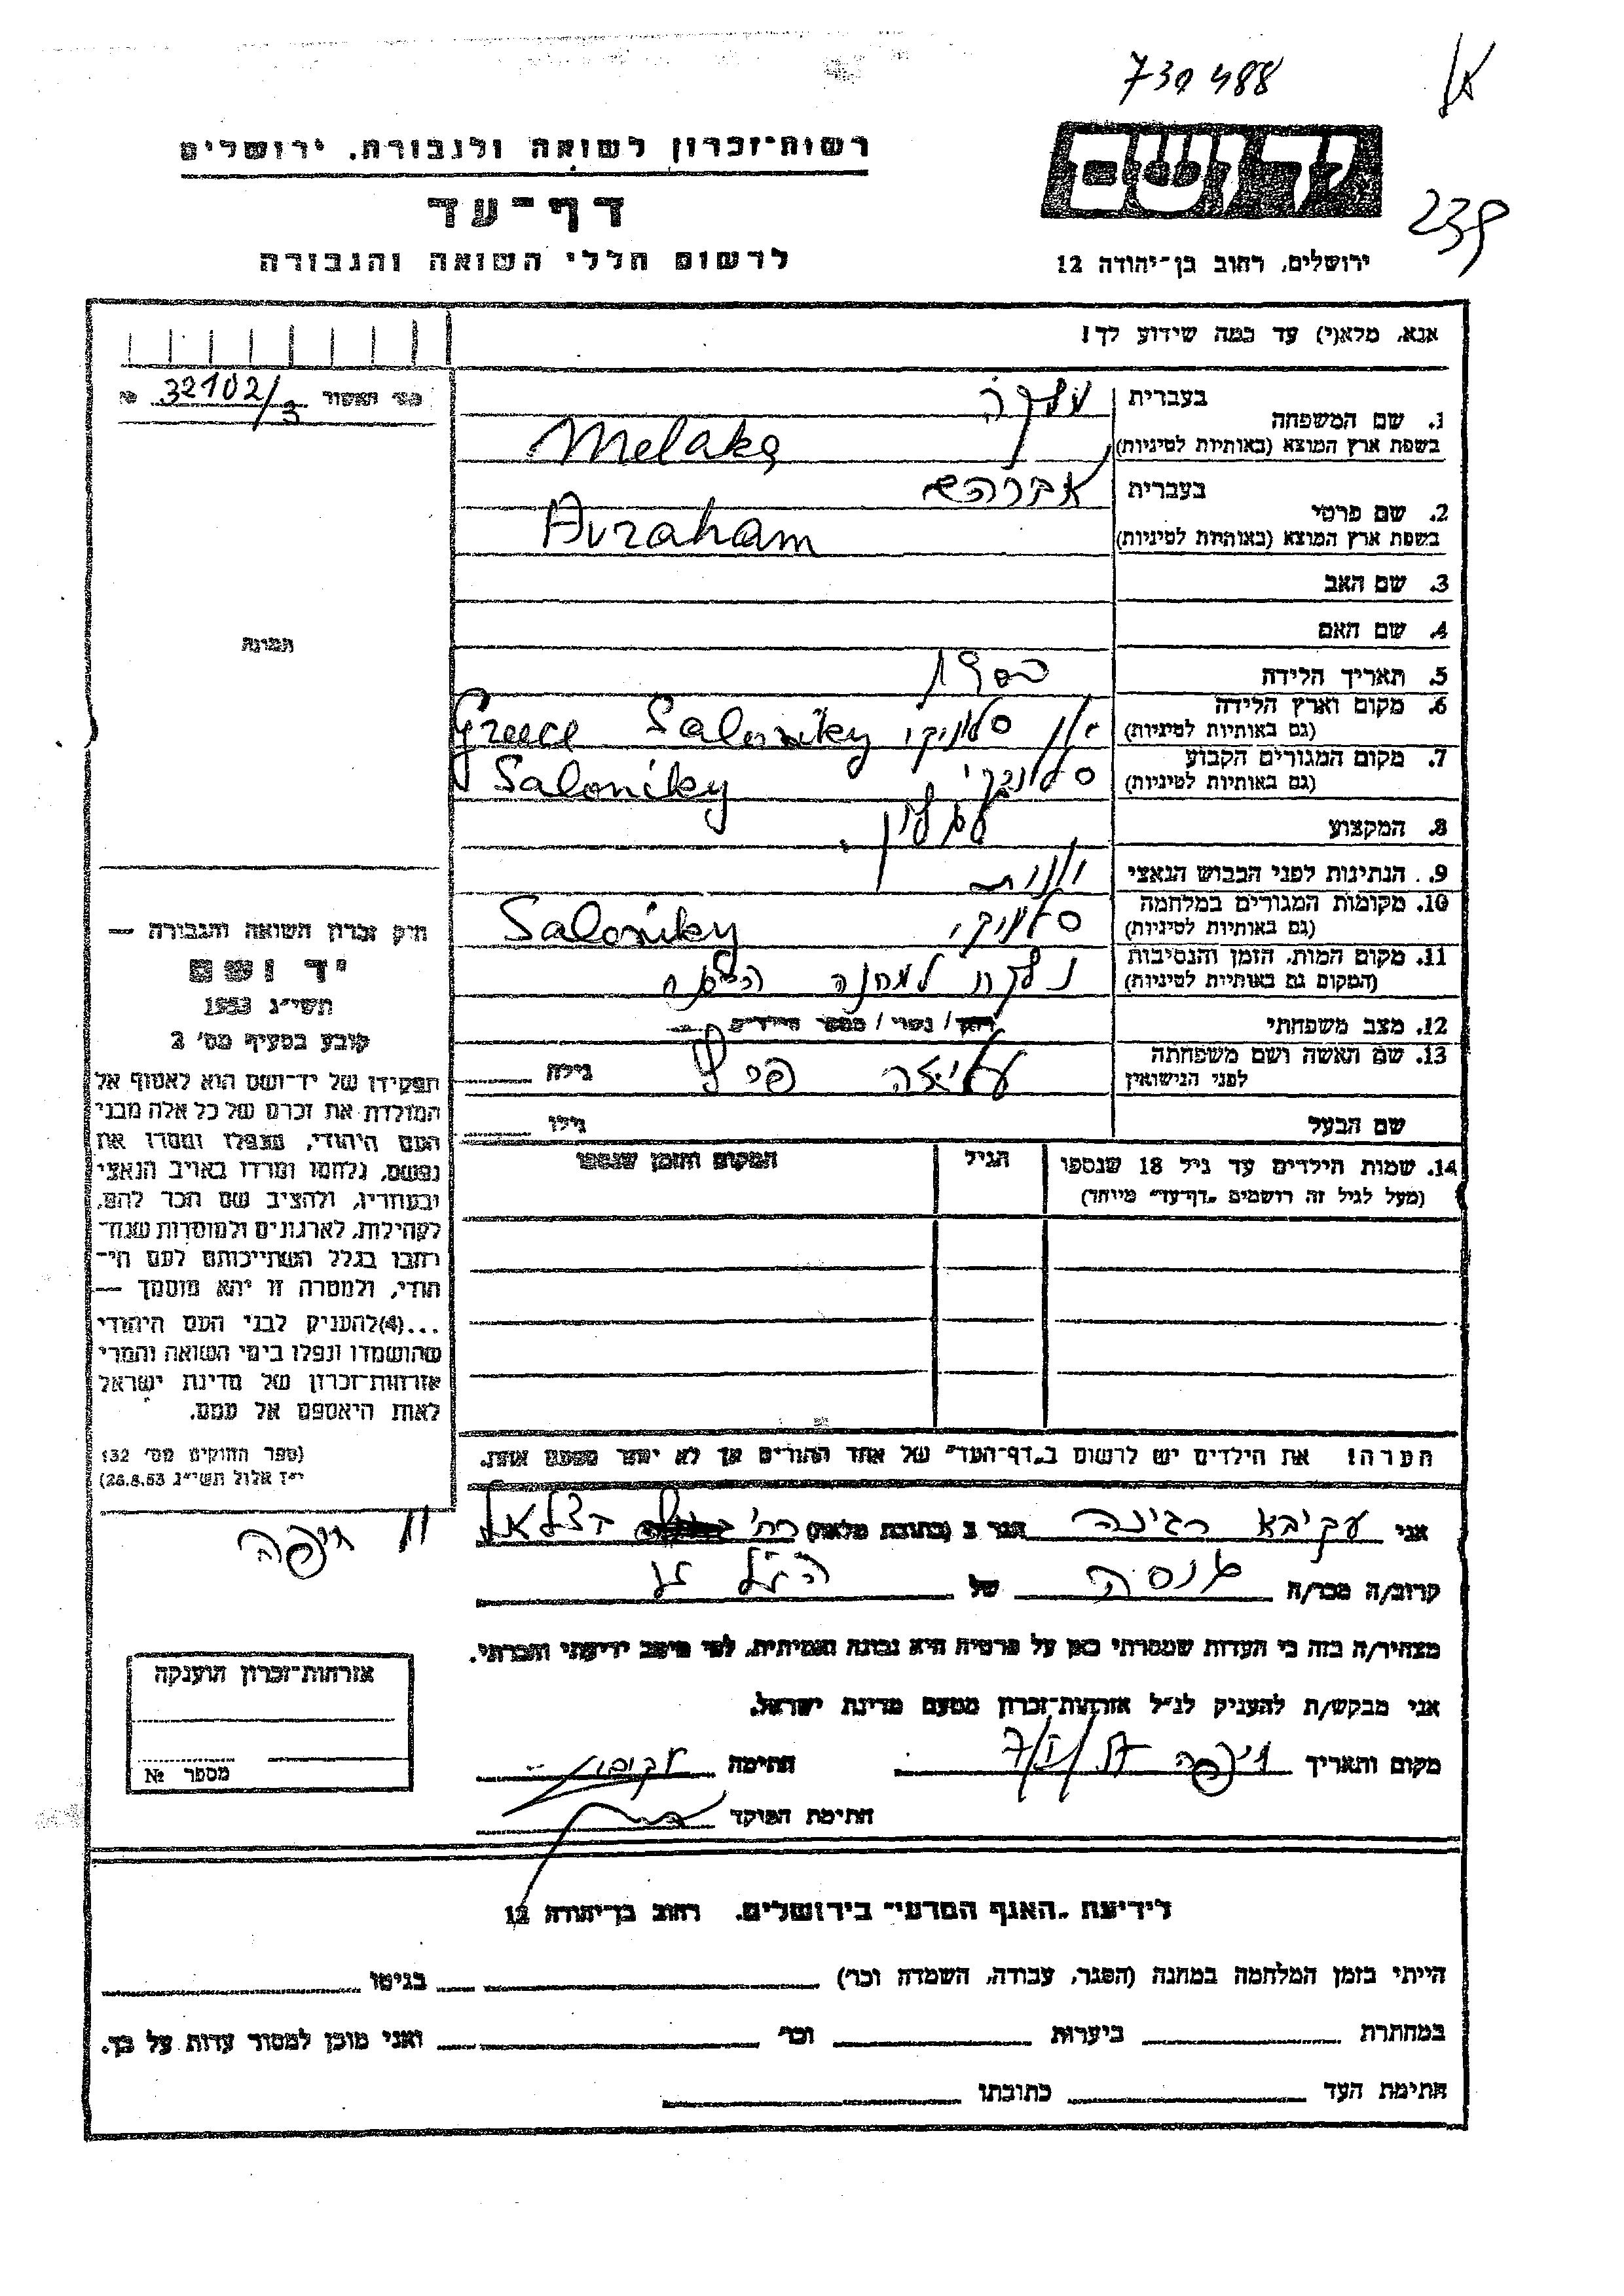 730488
239
רשות-זכרון לשואה ולגבורה, ירושלים
דף-עד
לרשום חללי השואה והגבורה
ידושם
ירושלים, רחוב בן-יהודה 12
אנא, מלא(י) עד כמה שידוע לך!
מס' האשור 32102/3
בעברית
1. שם המשפחה
בשפת ארץ המוצא (באותיות לטיניות) Melake
בעברית אברהם
2. שם פרטי
בשפת ארץ המוצא (באותיות לטיניות) Avraham
3. שם האב
4. שם האם
תמונה
5. תאריך הלידה
6. מקום וארץ הלידה
(גם באותיות לטיניות) יון סלוניקי Saloniky Greece
7. מקום המגורים הקבוע
(גם באותיות לטיניות) סלוניקי Saloniky
8. המקצוע
9. הנתינות לפני הכבוש הנאצי יונית
10. מקומות המגורים במלחמה
(גם באותיות לטיניות) סלוניקי Saloniky
11. מקום המות, הזמן והנסיבות
(המקום גם באותיות לטיניות) נלקח למחנה
12. מצב משפחתי רווק / נשוי / מספר הילדים
13. שם האשה ושם משפחתה
לפני הנישואין עליזה גילה
שם הבעל גילו
14. שמות הילדים עד גיל 18 שנספו הגיל המקום והזמן שנספו
(מעל לגיל זה רושמים "דף-עד" מיוחד)
חוק זכרון השואה והגבורה —
יד ושם
תשי"ג 1953
קובע בסעיף מס' 2
תפקידו של יד-ושם הוא לאסוף אל
המולדת את זכרם של כל אלה מבני
העם היהודי, שנפלו ומסרו את
נפשם, נלחמו ומרדו באויב הנאצי
ובעוזריו, ולהציב שם וזכר להם,
לקהילות, לארגונים ולמוסדות שנח-
רבו בגלל השתייכותם לעם הי-
הודי, ולמטרה זו יהא מוסמך —
...(4) להעניק לבני העם היהודי
שהושמדו ונפלו בימי השואה והמרי
אזרחות-זכרון של מדינת ישראל
לאות היאספם אל עמם.
(ספר החוקים מס' 132
י"ז אלול תשי"ג 26.8.53)
הערה! את הילדים יש לרשום ב"דף-העד" של אחד ההורים אך לא יותר מפעם אחת.
אני עקיבא רגינה הגר ב (כתובת מלאה) רח' בצלאל 11 חיפה
קרוב/ה מכר/ה של הנ"ל
מצהיר/ה בזה כי העדות שמסרתי כאן על פרטיה היא נכונה ואמיתית, לפי מיטב ידיעתי והכרתי.
אני מבקש/ת להעניק לנ"ל אזרחות-זכרון מטעם מדינת ישראל.
מקום ותאריך חיפה חתימה
חתימת הפוקד
אזרחות-זכרון הוענקה
מספר №
לידיעת "האגף המדעי" בירושלים. רחוב בן-יהודה 12
הייתי בזמן המלחמה במחנה (הסגר, עבודה, השמדה וכו') בגיטו
במחתרת ביערות וכו' ואני מוכן למסור עדות על כך.
חתימת העד כתובתו